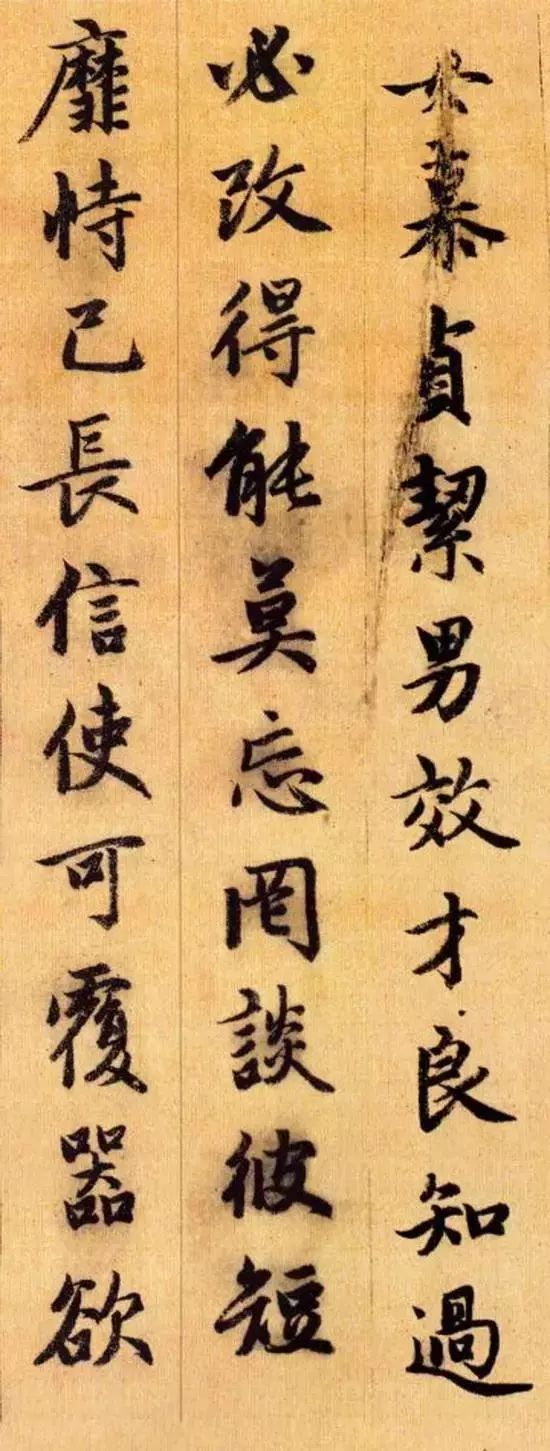 女慕貞絜男效才良知過
必改得能莫忘罔談彼短
靡恃己長信使可覆器欲